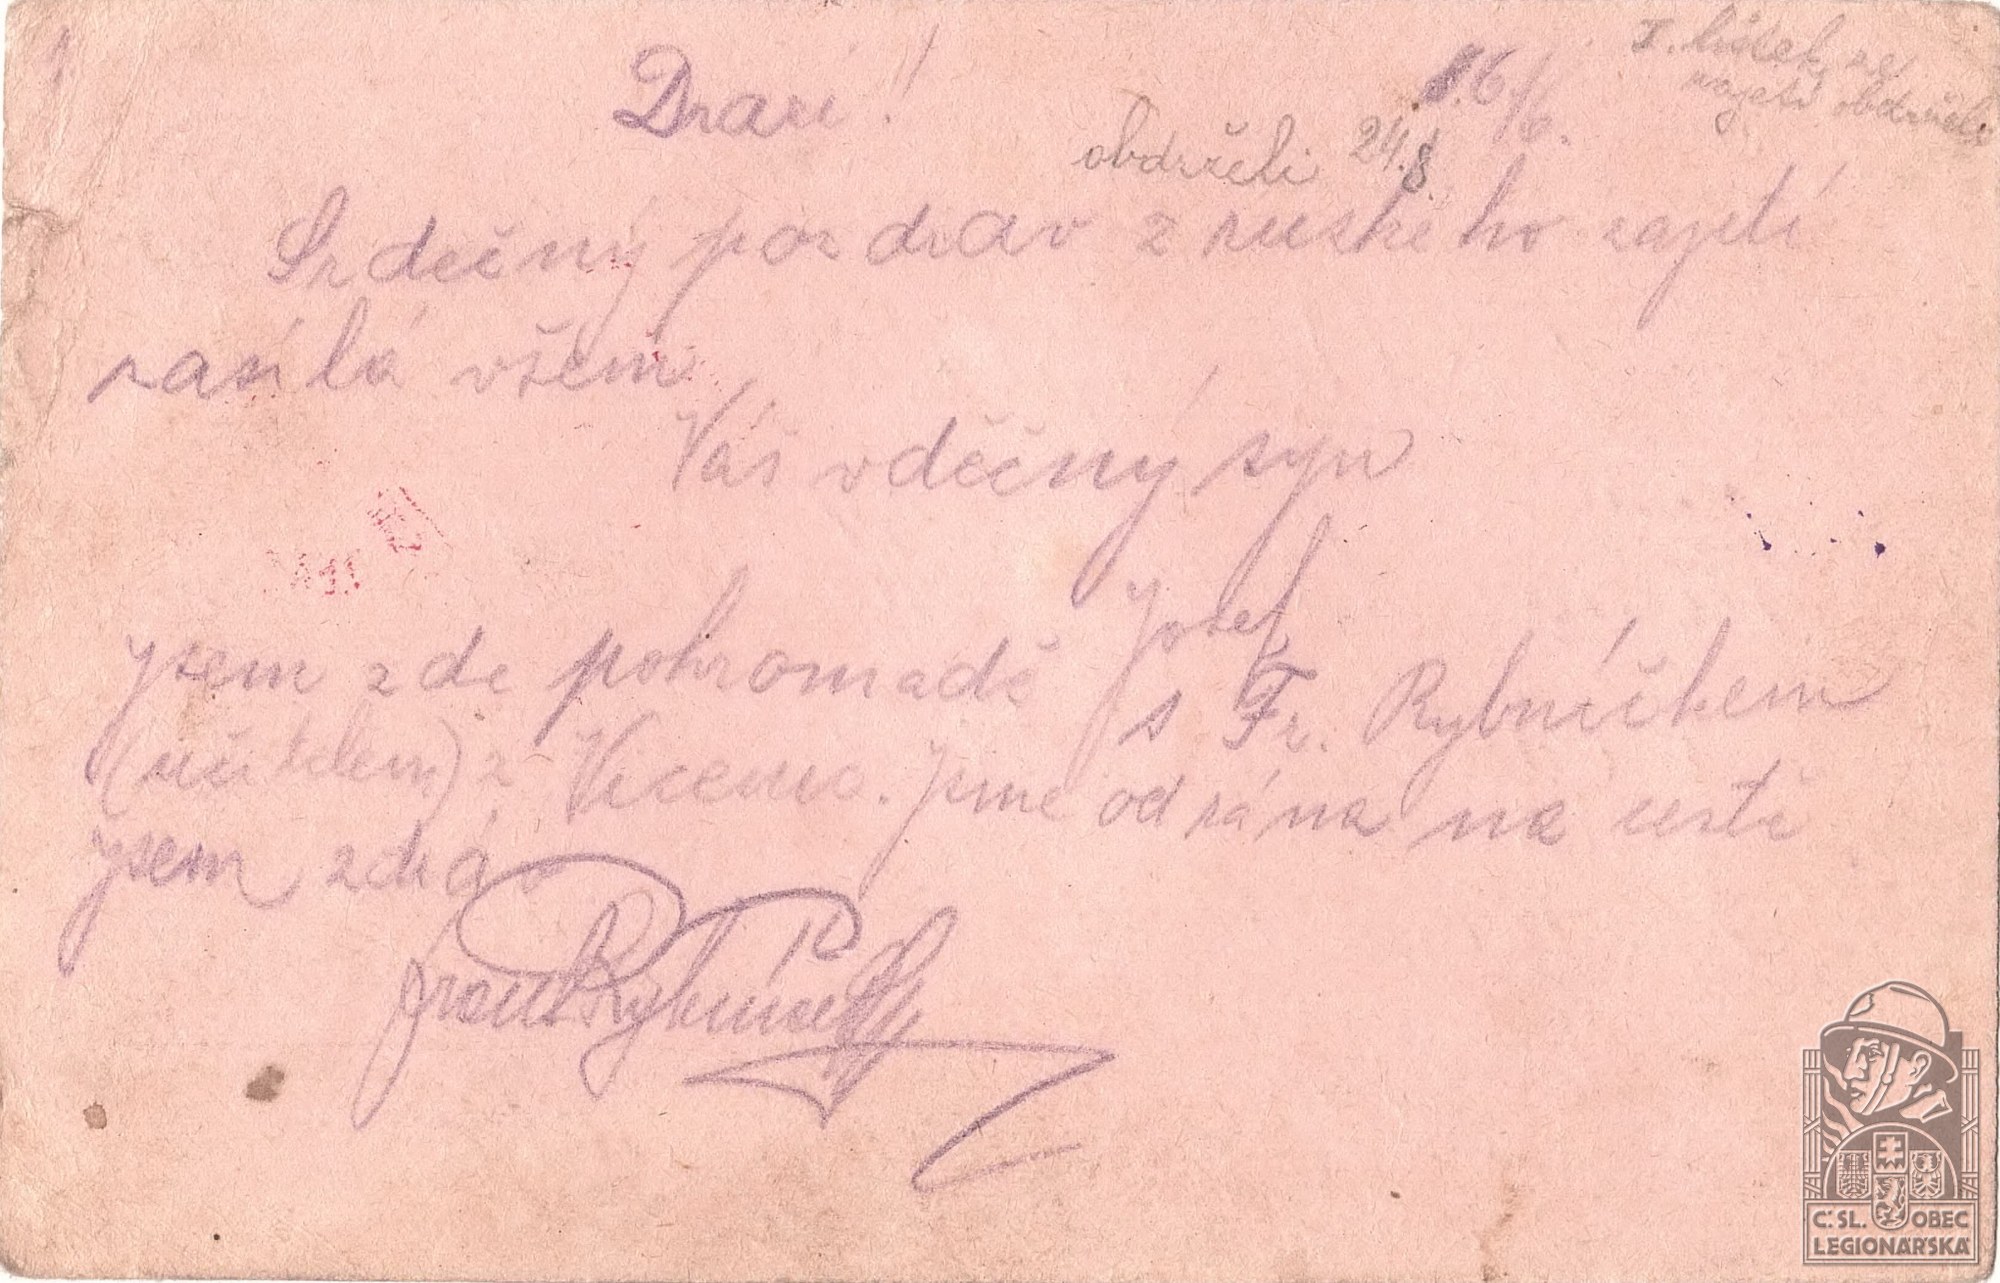 I. lístek ze
zajetí obdržela
Drazí!
16/6.
obdrželi 24.8.
Srdečný pozdrav z ruského zajetí
zasílá všem
Váš vděčný syn
Josef
jsem zde pohromadě s Fr. Rybníčkem
(učitelem) z Vicenic. Jsme od rána na cestě
jsem zdráv
Frant Rybníček
Č:SL. OBEC
LEGIONÁŘSKÁ